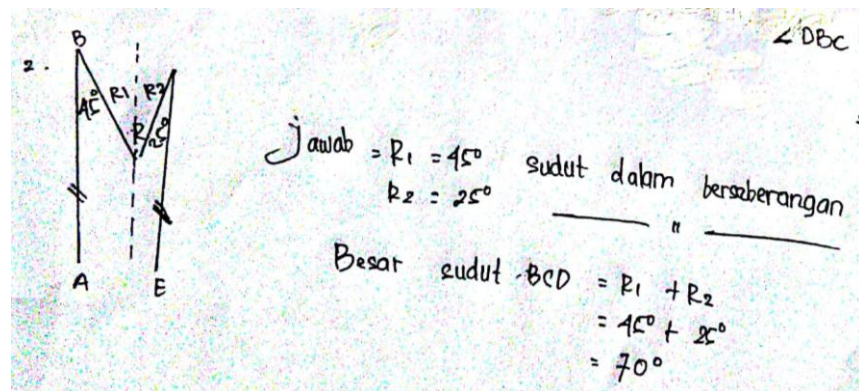 ∠ DBC
2.
B
45°
R1
R2
R
25°
A
E
Jawab = R1 = 45° sudut dalam berseberangan
R2 = 25° ——— " ———
Besar sudut BCD = R1 + R2
= 45° + 25°
= 70°